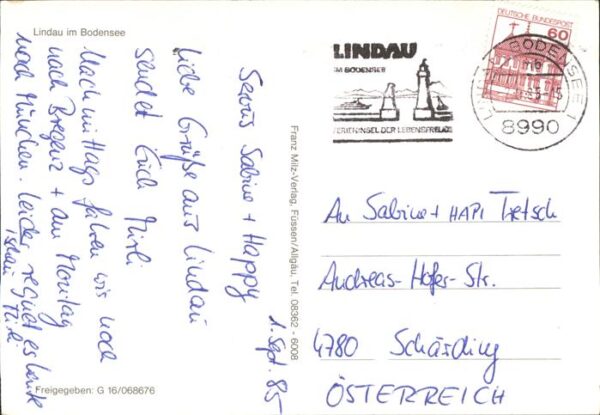 Lindau im Bodensee
1. Sept. 85
Servus Sabine + Happy
Liebe Grüße aus Lindau
sendet Euch Mirli
Nachmittags fahren wir noch
nach Bregenz + am Montag
nach München. Leider regnet es heute
Franz Milz-Verlag, Füssen/Allgäu, Tel. 08362 - 6008
Freigegeben: G 16/068676
LINDAU
IM BODENSEE
FERIENINSEL DER LEBENSFREUDE
DEUTSCHE BUNDESPOST
60
BODENSEE
8990
An Sabine + HAPI Tretsch
Andreas-Hofer-Str.
4780 Schärding
ÖSTERREICH